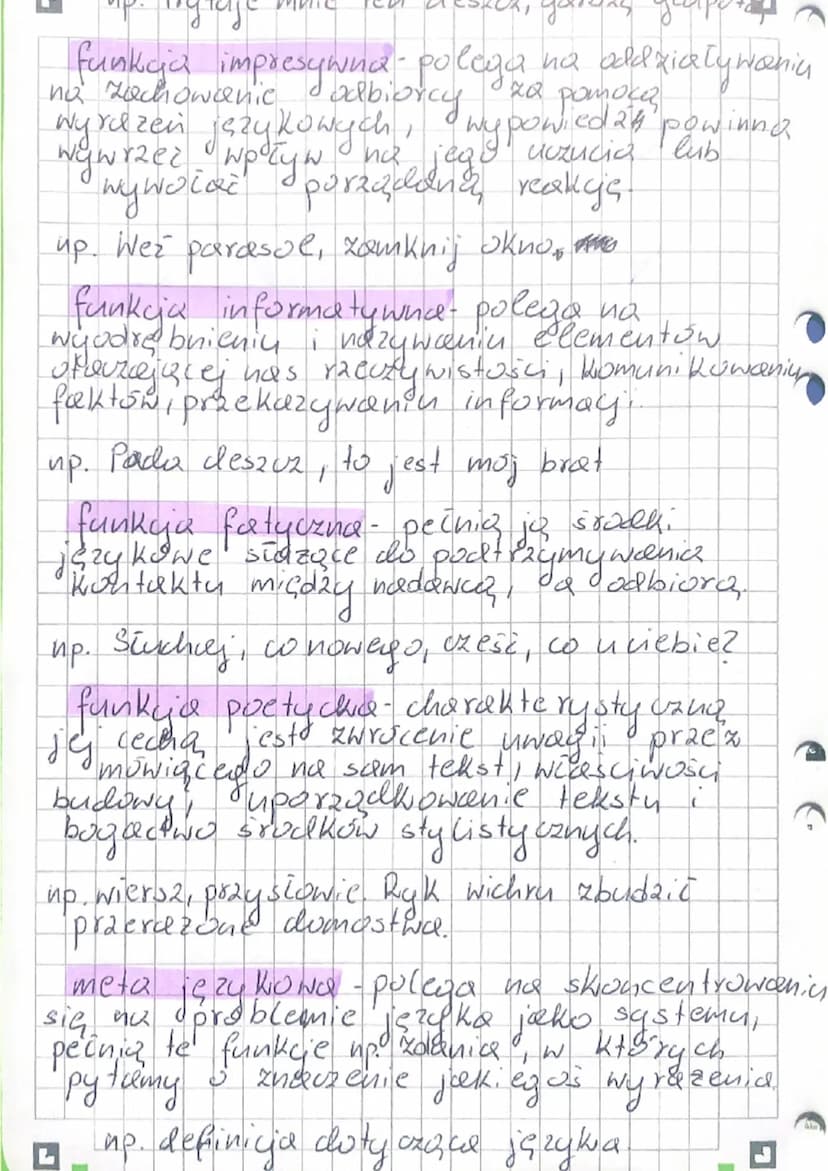 np. Irytuje mnie ten deszcz, gadasz głupoty
funkcja impresywna - polega na oddziaływaniu
na zachowanie odbiorcy za pomocą
wyrażeń językowych, wypowiedź powinna
wywrzeć wpływ na jego uczucia lub
wywołać porządaną reakcję.
np. Weź parasol, zamknij okno.
funkcja informatywna - polega na
wyodrębnieniu i nazywaniu elementów
otaczającej nas rzeczywistości, komunikowaniu
faktów, przekazywaniu informacji.
np. Pada deszcz, to jest mój brat
funkcja fatyczna - pełnią ją środki
językowe służące do podtrzymywania
kontaktu między nadawcą, a odbiorcą.
np. Słuchaj, co nowego, cześć, co u ciebie?
funkcja poetycka - charakterystyczną
jej cechą jest zwrócenie uwagii przez
mówiącego na sam tekst, właściwości
budowy, uporządkowanie tekstu i
bogactwo środków stylistycznych.
np. wiersz, przysłowie. Ryk wichru zbudził
przerażone domostwa.
meta językowa - polega na skoncentrowaniu
się na problemie języka jako systemu,
pełnią te funkcje np. zdania, w których
pytamy o znaczenie jakiegoś wyrażenia
np. definicja dotycząca języka.